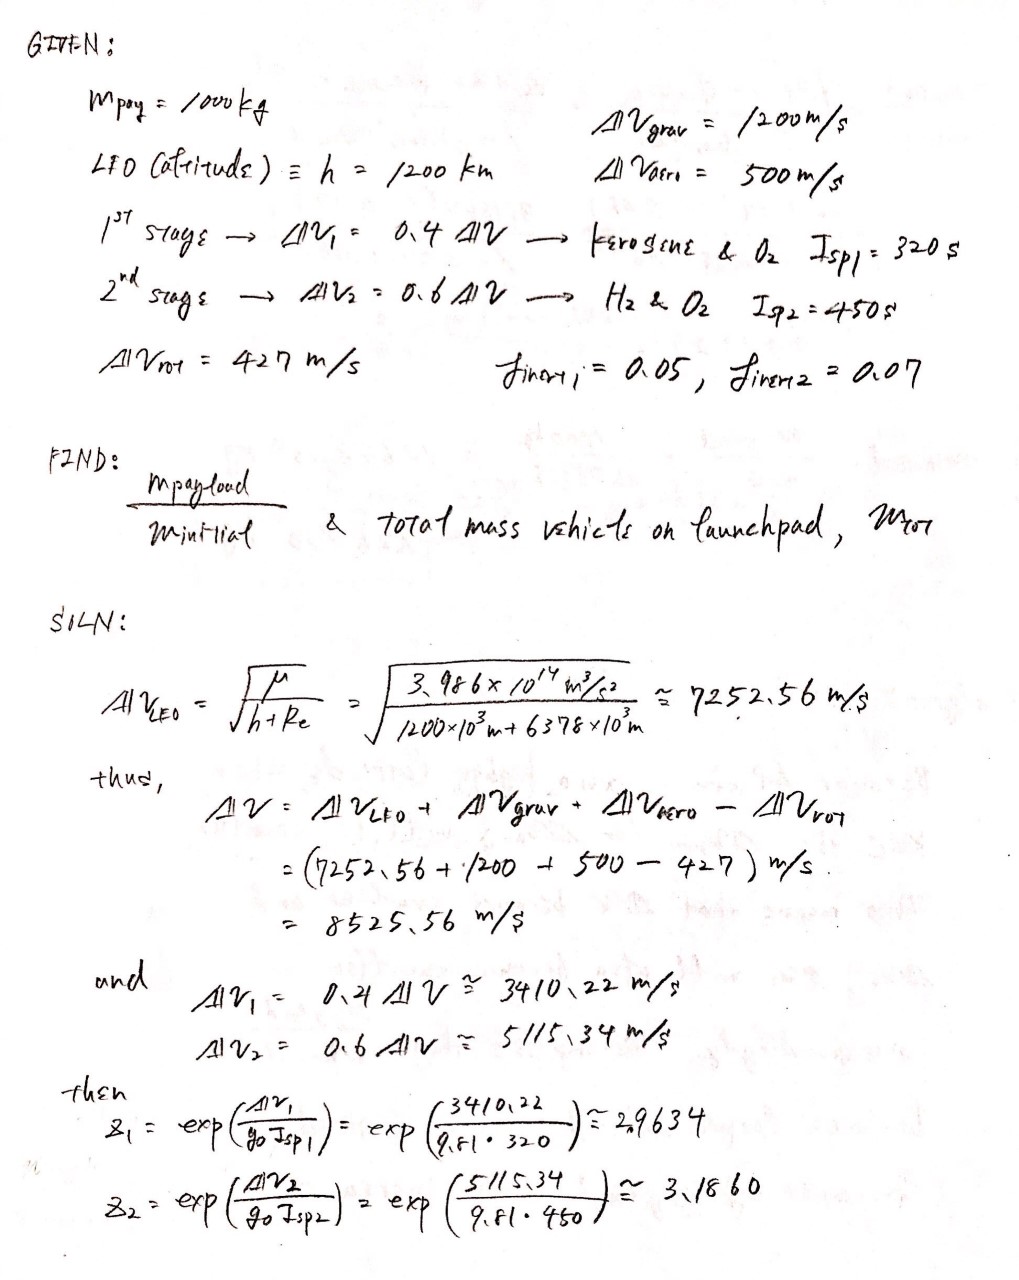 GIVEN:
mpay = 1000kg
ΔVgrav = 1200m/s
LEO (altitude) ≡ h = 1200 km
ΔVaero = 500 m/s
1ST stage → ΔV1 = 0.4 ΔV → kerosene & O2 Isp1 = 320 s
2nd stage → ΔV2 = 0.6 ΔV → H2 & O2 Isp2 = 450s
ΔVrot = 427 m/s
finert1 = 0.05, finert2 = 0.07
FIND:
mpayload / minitial & total mass vehicle on launchpad, mtot
SOLN:
ΔVLEO = √(μ / (h+Re)) = √(3.986×10^14 m³/s² / (1200×10³m + 6378×10³m)) ≅ 7252.56 m/s
thus,
ΔV = ΔVLEO + ΔVgrav + ΔVaero − ΔVrot
= (7252.56 + 1200 + 500 − 427) m/s
= 8525.56 m/s
and
ΔV1 = 0.4 ΔV ≅ 3410.22 m/s
ΔV2 = 0.6 ΔV ≅ 5115.34 m/s
then
z1 = exp(ΔV1 / g0 Isp1) = exp(3410.22 / 9.81 · 320) ≅ 2.9634
z2 = exp(ΔV2 / g0 Isp2) = exp(5115.34 / 9.81 · 450) ≅ 3.1860